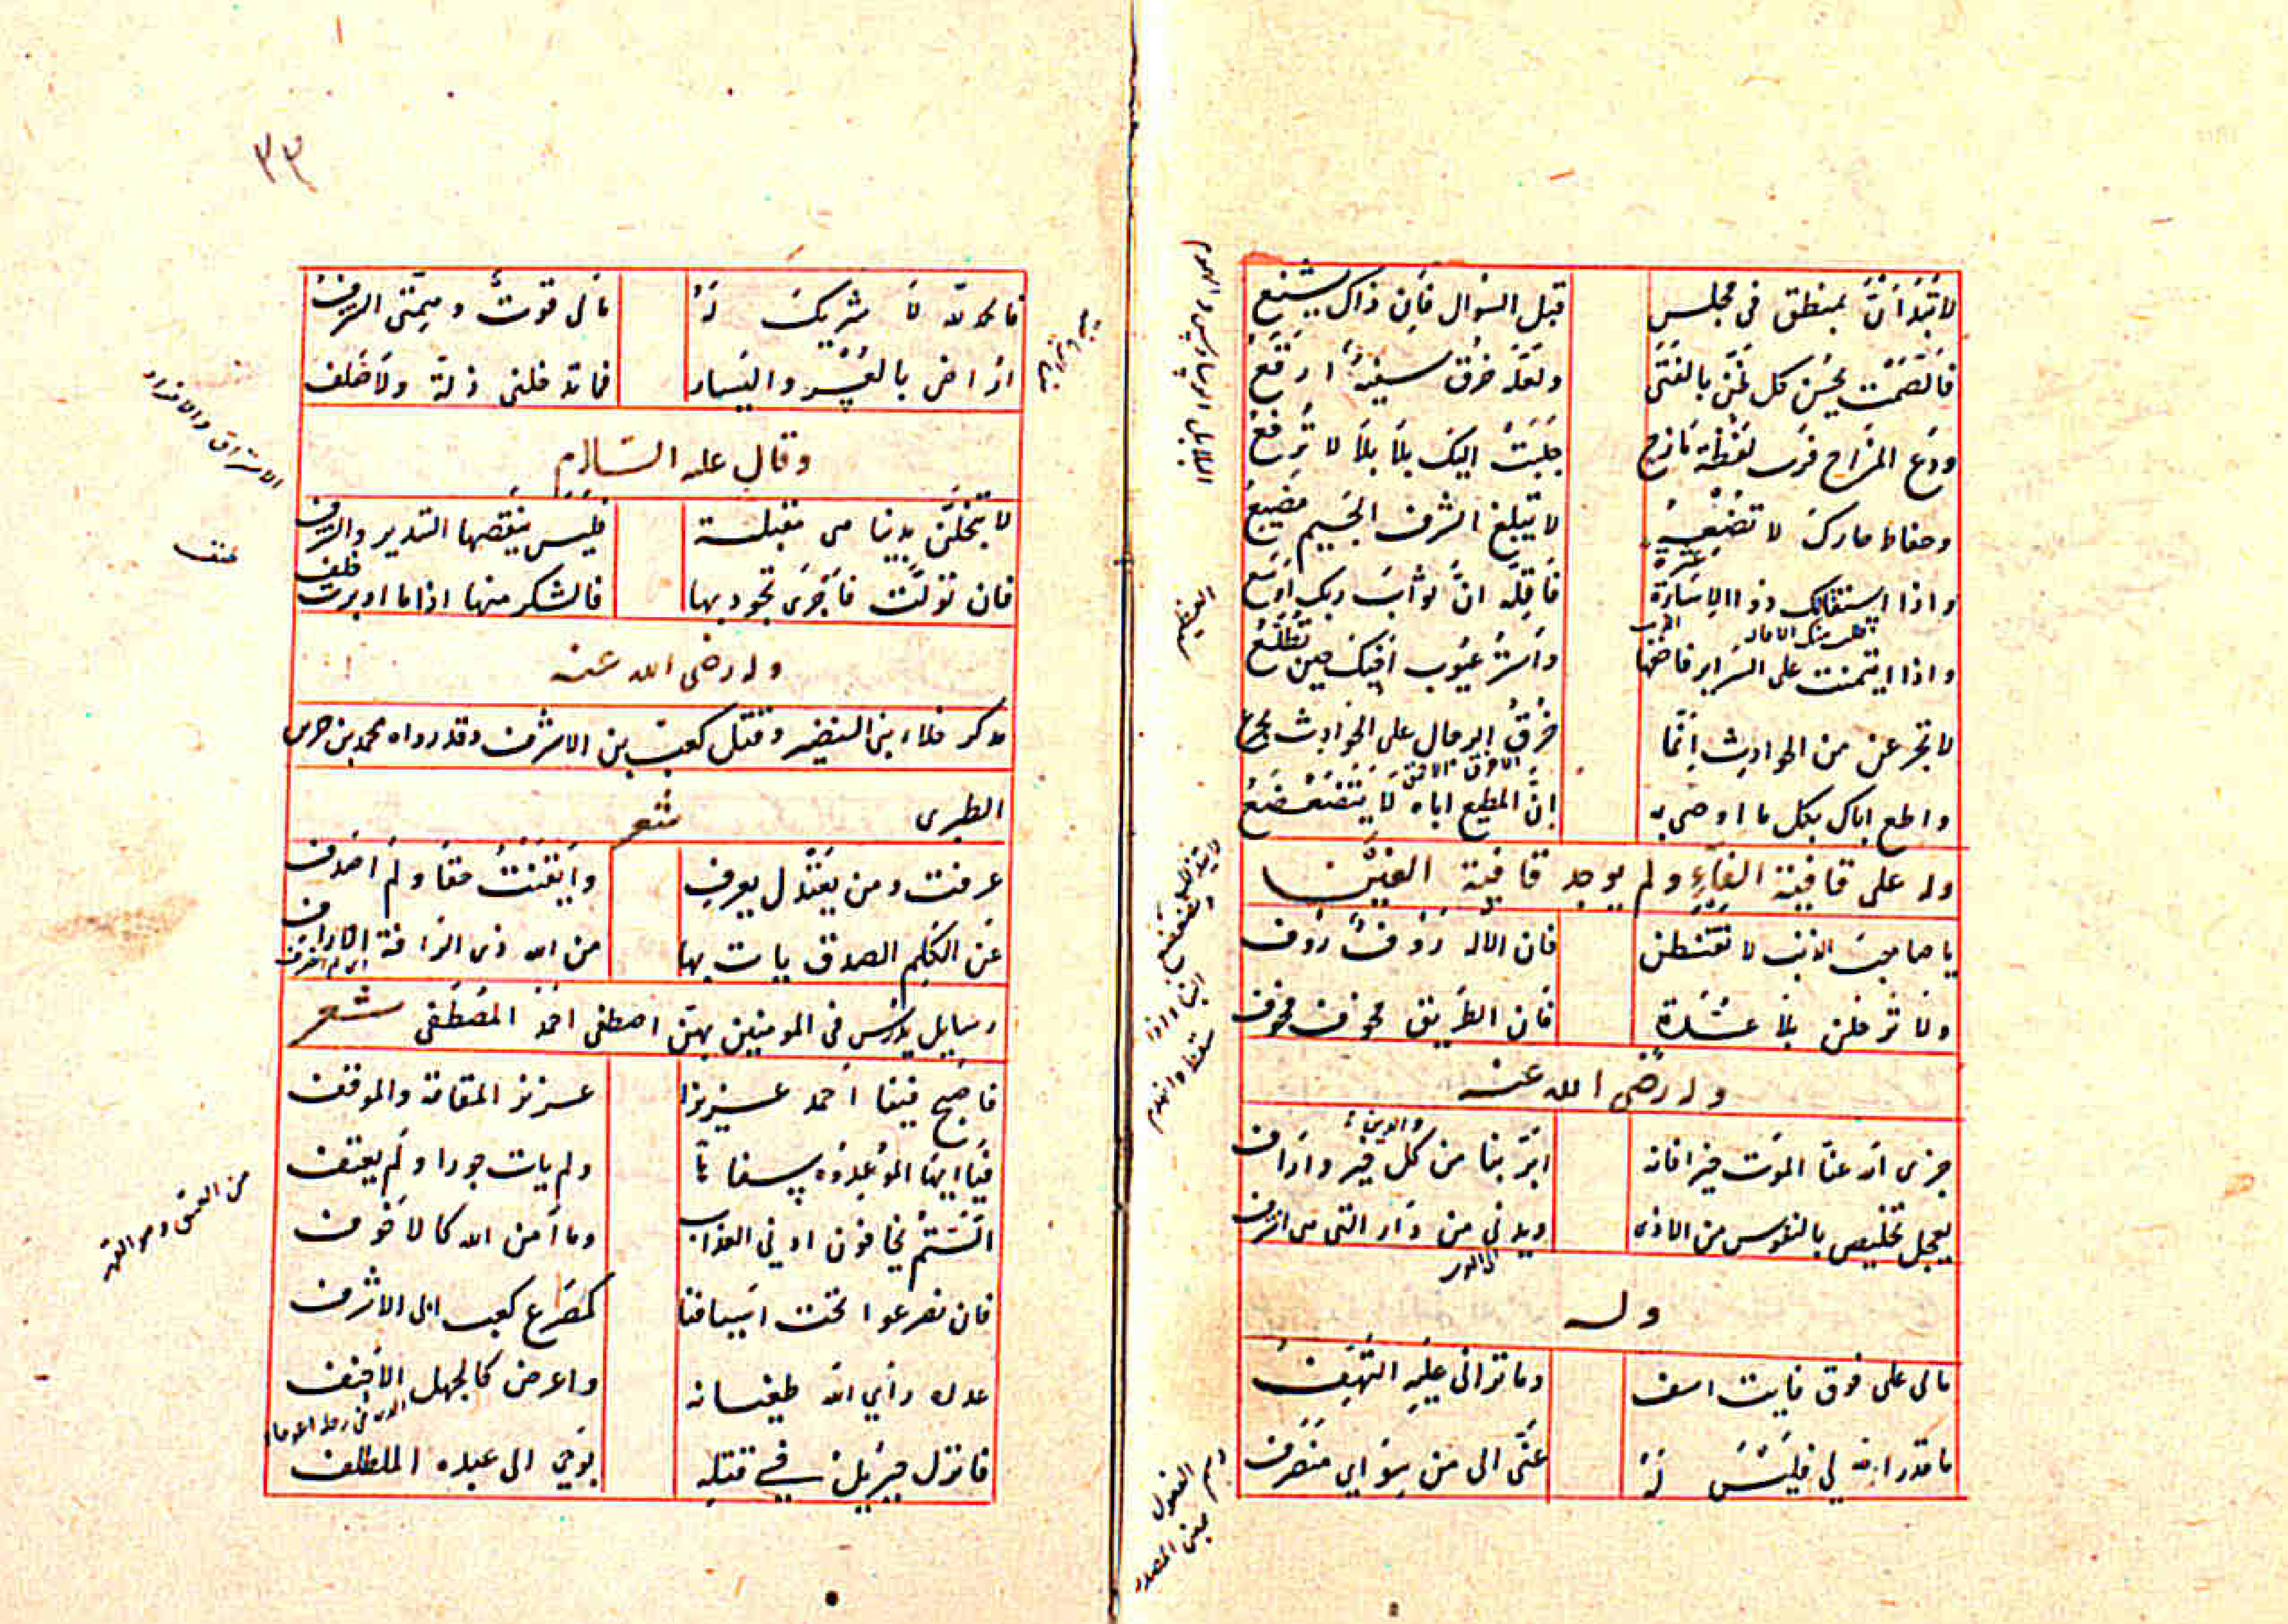 لا تَبْدَأَنَّ بمنطق في مجلس قبل السؤال فإن ذاك يشنع
فالصَّمت يُحسن كل ظنّ بالفتى ولعلّه خرق سفيه ارقع
ودع المزاح فربّ لفظة مازح جلبت اليك بلابلا لا ترفع
وحفاظ جارك لا تضعه لا يبلغ الشرف الجسيم مضيع
واذا استقالك ذو الاساءة عثرة فأقله انّ ثواب ربك اوسع
واذا ائتمنت على السراير فاخفها واستر عيوب اخيك حين تطلع
لا تجزعن من الحوادث انما خرق الرجال على الحوادث يجزع
واطع اباك بكل ما اوصى به انّ المطيع اباه لا يتضعضع
وله على قافية الفاء ولم يوجد قافية الغين
يا صاحب الذنب لا تقنطن فان الاله رؤف رؤف
ولا ترحلن بلا عدّة فان الطريق مخوف مخوف
وله رضى الله عنه
جزى الله عنّا الموت خيرا فانه ابرّ بنا من كل خير واراف
يعجل تخليص النفوس من الاذى ويدني من دار التي هي اشرف
وله
مالى على فوت فايت اسف وما تراني عليه التهف
ما قدر الله لي فليس له عنّى الى من سوائي منصرف
العظيم
اسم المفعول
بمعنى المصدر
٣٣
فالحمد لله لا شريك له مالى قوت وهمتى الشرف
انا راض بالعسر واليسار فما تدخلنى ذلة ولا صلف
وقال عليه السلام
لا تبخلنّ بدنيا هى مقبلة فليس ينقصها التبذير والسرف
فان تولّت فاحرى تجود بها فالشكر منها اذا ما ادبرت خلف
وله رضى الله عنه
يذكر جلاء بنى النضير وقتل كعب بن الاشرف وقد رواه محمد بن جرير
الطبرى شعر
عرفت ومن يعتدل يعرف وايقنت حقا ولم اصدف
عن الكلم الصدق يات بها من الله ذى الرافة الاراف
رسايل يدرس فى المومنين بهنّ اصطفى احمد المصطفى شعر
فاصبح فينا احمد عزيزا عزيز المقامة والموقف
فيا ايها الموعدوه سفاها ولم يات جورا ولم يعنف
الستم تخافون ادنى العذاب وما آمن الله كالاخوف
فان تصرعوا تحت اسيافنا كمصرع كعب ابى الاشرف
غداة رأى الله طغيانه واعرض كالجمل الاجنف
فانزل جبريل في قتله بوحي الى عبده الملطف
عنف